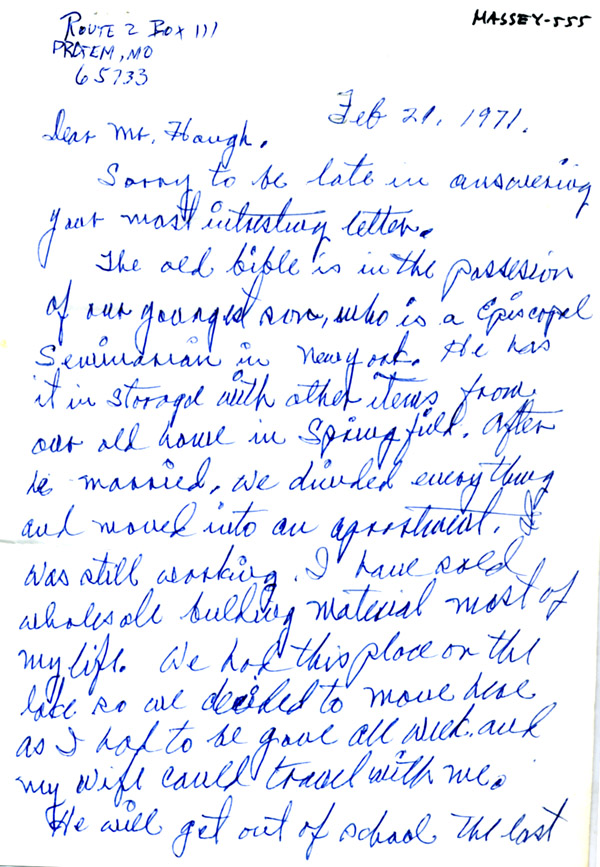 MASSEY-555
ROUTE 2 BOX 111
PROTEM, MO
65733
Feb 21, 1971.
Dear Mr. Hough.
Sorry to be late in answering
your most intresting letter.
The old bible is in the possesion
of our youngest son, who is a Episcopal
Seminarian in New York. He has
it in storage with other items from
our old home in Springfield. After
he married, we divided everything
and moved into an apartment. I
was still working. I have sold
wholesale building material most of
my life. We had this place on the
lake so we decided to move here
as I had to be gone all week and
my wife could travel with me.
He will get out of school the last